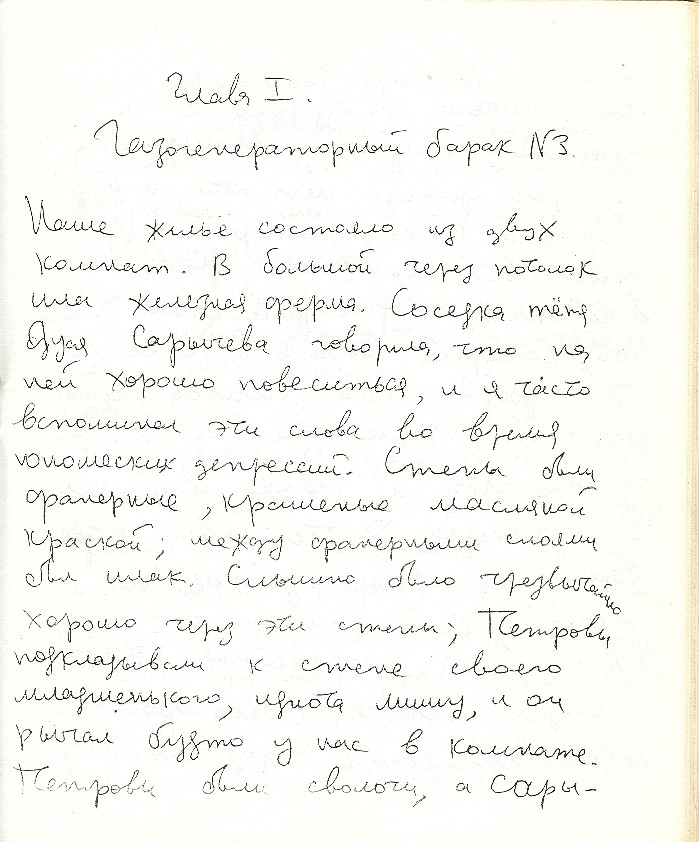 Глава I.
Газогенераторный барак №3.
Наше жильё состояло из двух
комнат. В большой через потолок
шла железная ферма. Соседка тётя
Дуся Сарычева говорила, что на
ней хорошо повеситься, и я часто
вспоминал эти слова во время
юношеских депрессий. Стены были
фанерные, крашеные масляной
краской; между фанерными слоями
был шлак. Слышно было чрезвычайно
хорошо через эти стены; Петровы
подкладывали к стене своего
младшенького, идиота Мишу, и он
рычал будто у нас в комнате.
Петровы были сволочи, а Сары-